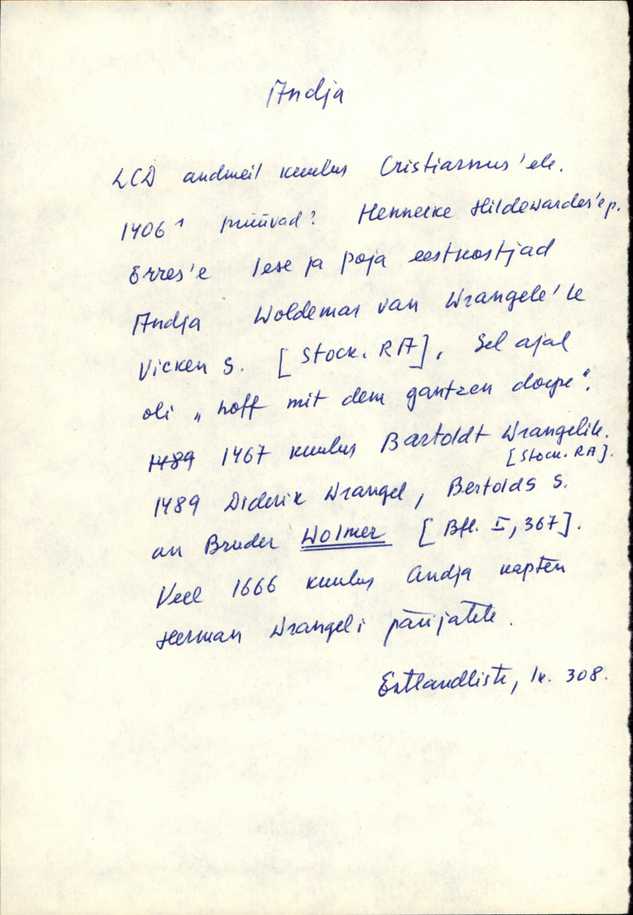 Andja
LCD andmeil kuulus Cristiarnus'ele.
1406 müüvad? Hennecke Hildewardes'e p.
Erres'e lese ja poja eestkostjad
Andja Woldemar van Wrangele'le
Vicken S. [Stock. RA]. Sel ajal
oli „hoff mit dem gantzen dorpe".
1489 1467 kuulus Bartoldt Wrangelile.
[Stock. RA].
1489 Diderik Wrangel, Bertolds S.
an Bruder Wolmer [Bfl. I, 367].
Veel 1666 kuulus Andja kapten
Herman Wrangeli pärijatele.
Estlandliste, lk. 308.